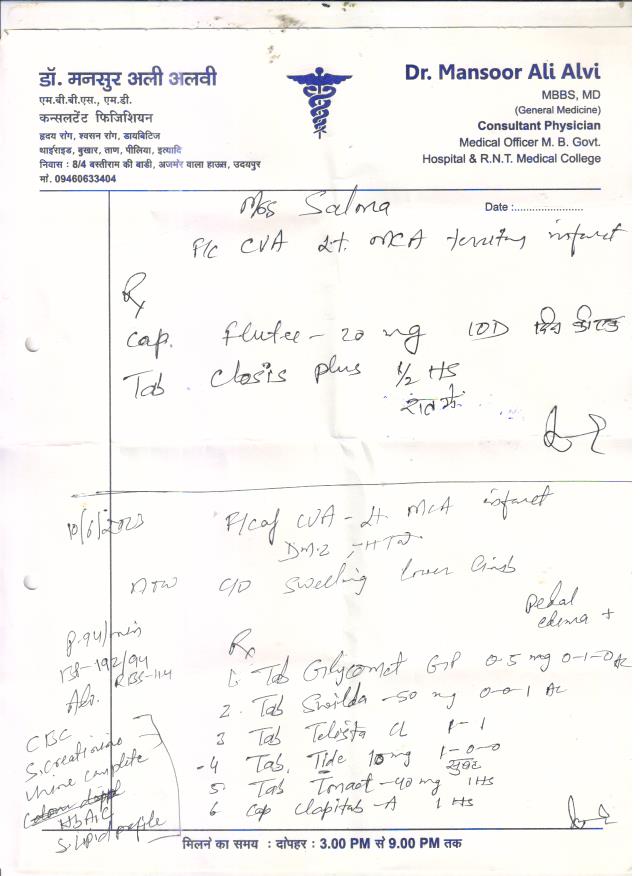 डॉ. मनसुर अली अलवी
एम.बी.बी.एस., एम.डी.
कन्सलटेंट फिजिशियन
हृदय रोग, श्वसन रोग, डायबिटिज
थाईराइड, बुखार, ताण, पीलिया, इत्यादि
निवास : 8/4 बस्तीराम की बाडी, अजमेर वाला हाउस, उदयपुर
मां. 09460633404
Dr. Mansoor Ali Alvi
MBBS, MD
(General Medicine)
Consultant Physician
Medical Officer M. B. Govt.
Hospital & R.N.T. Medical College
Date :......................
Salma
CVA Lt. MCA territory infarct
Rx
Cap. Flutee - 20 mg 1OD
Tab. Closis plus 1/2 HS
रात में
10/6/2023
CVA - Lt. MCA infarct
DM-2, HTN
Now C/O Swelling lower limb
pedal edema +
P-94/min
BP-192/94
RBS-114
Adv.
CBC
S.creatinine
Urine complete
HbA1C
S.Lipid profile
Rx
1. Tab Glycomet GP 0.5 mg 0-1-0 AC
2. Tab 50 mg 0-0-1 AC
3 Tab Telista CL 1-1
4 Tab. Tide 10 mg 1-0-0
सुबह
5 Tab Tonact - 40 mg 1HS
6 Cap Clopitab - A 1 HS
मिलने का समय : दोपहर : 3.00 PM से 9.00 PM तक